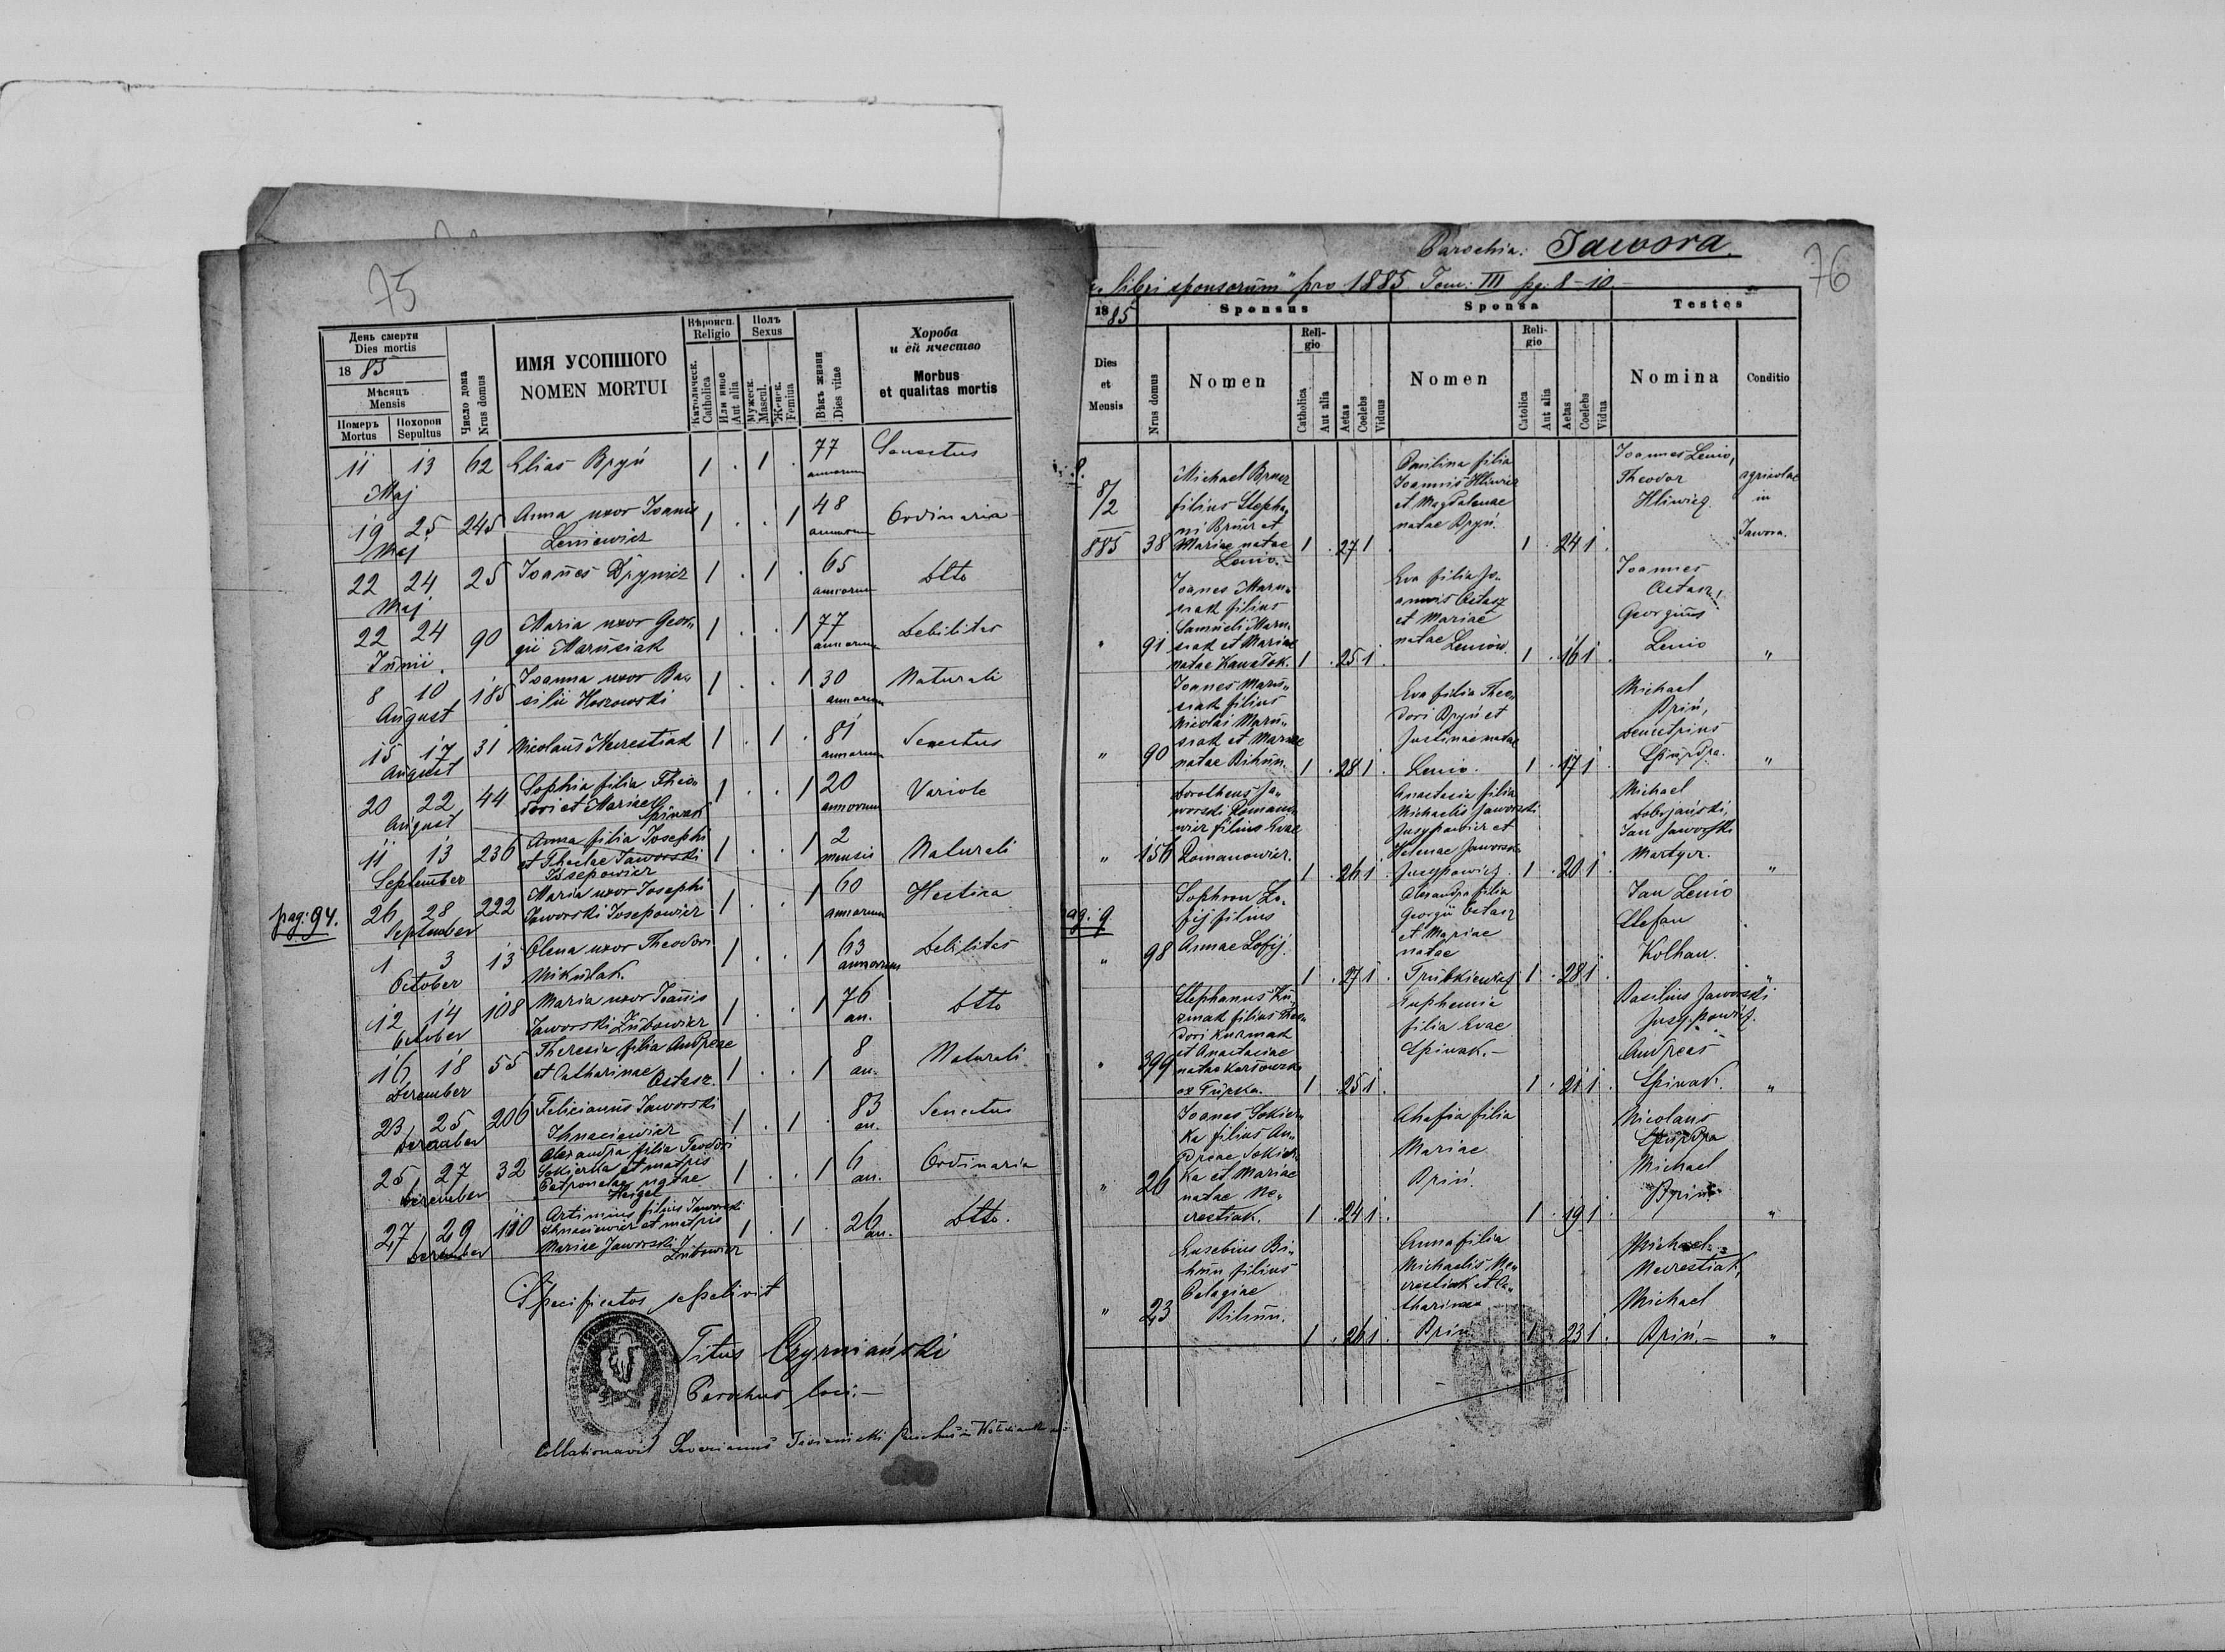 75
День смерти
Dies mortis
1885
Мѣсяць
Mensis
Померъ
Mortus
Похорон
Sepultus
Число дома
Nrus domus
ИМЯ УСОПШОГО
NOMEN MORTUI
Вѣроисп.
Religio
Католическ.
Catholica
Или иное
Aut alia
Полъ
Sexus
Мужеск.
Mascul.
Женск.
Femina
Вѣкъ жизни
Dies vitae
Хороба
и ей ячество
Morbus
et qualitas mortis
11 13 62 Elias Bryń 1 . 1 . 77 Senectus
Maj annorum
19 25 245 Anna uxor Ioanis 1 . . 1 48 Ordinaria
Maj Leniewicz annorum
22 24 25 Ioannes 1 . 1 . 65 Dtto
Maj annorum
22 24 90 Maria uxor Geor- 1 . . 1 77 Debilitas
Junii. gii Marusiak annorum
8 10 185 Joanna uxor Ba- 1 . . 1 30 Naturali
August silii Hoszowski annorum
15 17 31 Nicolaus 1 . 1 . 81 Senectus
August annorum
20 22 44 Sophia filia Theo- 1 . . 1 20 Variole
August dori et Mariae Spiwak annorum
11 13 236 Anna filia Josephi 1 . . 1 2 Naturali
September et Theclae Jaworski mensis
Iosepowicz
pag: 94. 26 28 222 Maria uxor Josephi 1 . . 1 60 Hectica
September Jaworski Iosepowicz annorum
1 3 13 Olena uxor Theodori 1 . . 1 63 Debilitas
October Mikulak. annorum
12 14 108 Maria uxor Ioanis 1 . . 1 76 Dtto
October Jaworski Zubowicz an.
16 18 55 Theresia filia Andreae 1 . . 1 8 Naturali
December et Catharinae Ostasz. an.
23 25 206 Felicianus Jaworski 1 . 1 . 83 Senectus
December Ihnaciewicz an.
25 27 32 Alexandra filia Teodori 1 . . 1 6 Ordinaria
December Sokierka et matris an.
Petronelae natae
Heigel
27 29 110 Artimius filius Jaworski 1 . 1 . 26 Dtto.
December Ihnaciewicz et matris an.
Mariae Jaworski
Zubowicz
Specificatos sepelivit
Titus Czyrniański
Parochus loci.—
Collationavit Severianus
76
Parochia: Jawora.
libri sponsorum" pro 1885 Tom: III pg. 8-10.-
1885
Sponsus
Sponsa
Testes
Dies
et
Mensis
Nrus domus
Nomen
Reli-
gio
Catholica
Aut alia
Aetas
Coelebs
Viduus
Nomen
Reli-
gio
Catolica
Aut alia
Aetas
Coelebs
Vidua
Nomina
Conditio
8/2 885 38
Michael
filius Stepha-
ni et
Mariae natae
Lenio.- 1 . 27 1 .
Paulina filia
Joannis Hliwicz
et Magdalenae
natae Bryń. 1 . 24 1 .
Joannes Lenio,
Theodor
Hliwicz.
agricolae
in
Jawora.
" 91
Joanes Maru-
siak filius
Samueli Maru-
siak et Mariae
natae 1 . 25 1 .
Eva filia Jo-
annis Ostasz
et Mariae
natae Leniów. 1 . 16 1 .
Joannes
Ostasz,
Georgius
Lenio "
" 90
Joanes Maru-
siak filius
Nicolai Maru-
siak et Mariae
natae Bihun. 1 . 28 1 .
Eva filia Theo-
dori Bryń et
Justinae natae
Lenio. 1 . 17 1 .
Michael
Briń,
Demetrius
"
" 156
Dorotheus Ja-
worski Romano-
wicz filius Evae
Romanowicz. 1 . 26 1 .
Anastasia filia
Michaelis Jaworski
Jusypowicz et
Helenae Jaworski
Jusypowicz. 1 . 20 1 .
Michael
Dobrjański,
Jan Jaworski
Martycz. "
pag: 9
" 98
Sophron Lo-
fij filius
Annae Lofij. 1 . 27 1 .
Alexandra filia
Georgii Ostasz
et Mariae
natae
1 . 28 1 .
Jan Lenio
Stefan
Kolhan. "
" 399
Stephanus Ku-
zmak filius Theo-
dori Kuzmak
et Anastasiae
natae
ex Turka. 1 . 25 1 .
Euphemia
filia Evae
Spiwak.- 1 . 21 1 .
Basilius Jaworski
Jusypowicz.
Andreas
Spiwak. "
" 26
Joanes Sokier-
ka filius An-
dreae Sokier-
ka et Mariae
natae Me-
restiak. 1 . 24 1 .
Ahafia filia
Mariae
Briń. 1 . 19 1 .
Nicolaus
Michael
Briń. "
" 23
Eusebius Bi-
hun filius
Pelagiae
Bihun. 1 . 26 1 .
Anna filia
Michaelis Me-
restiak et Ca-
tharinae
Briń 1 . 23 1 .
Michael
Merestiak,
Michael
Briń.- "